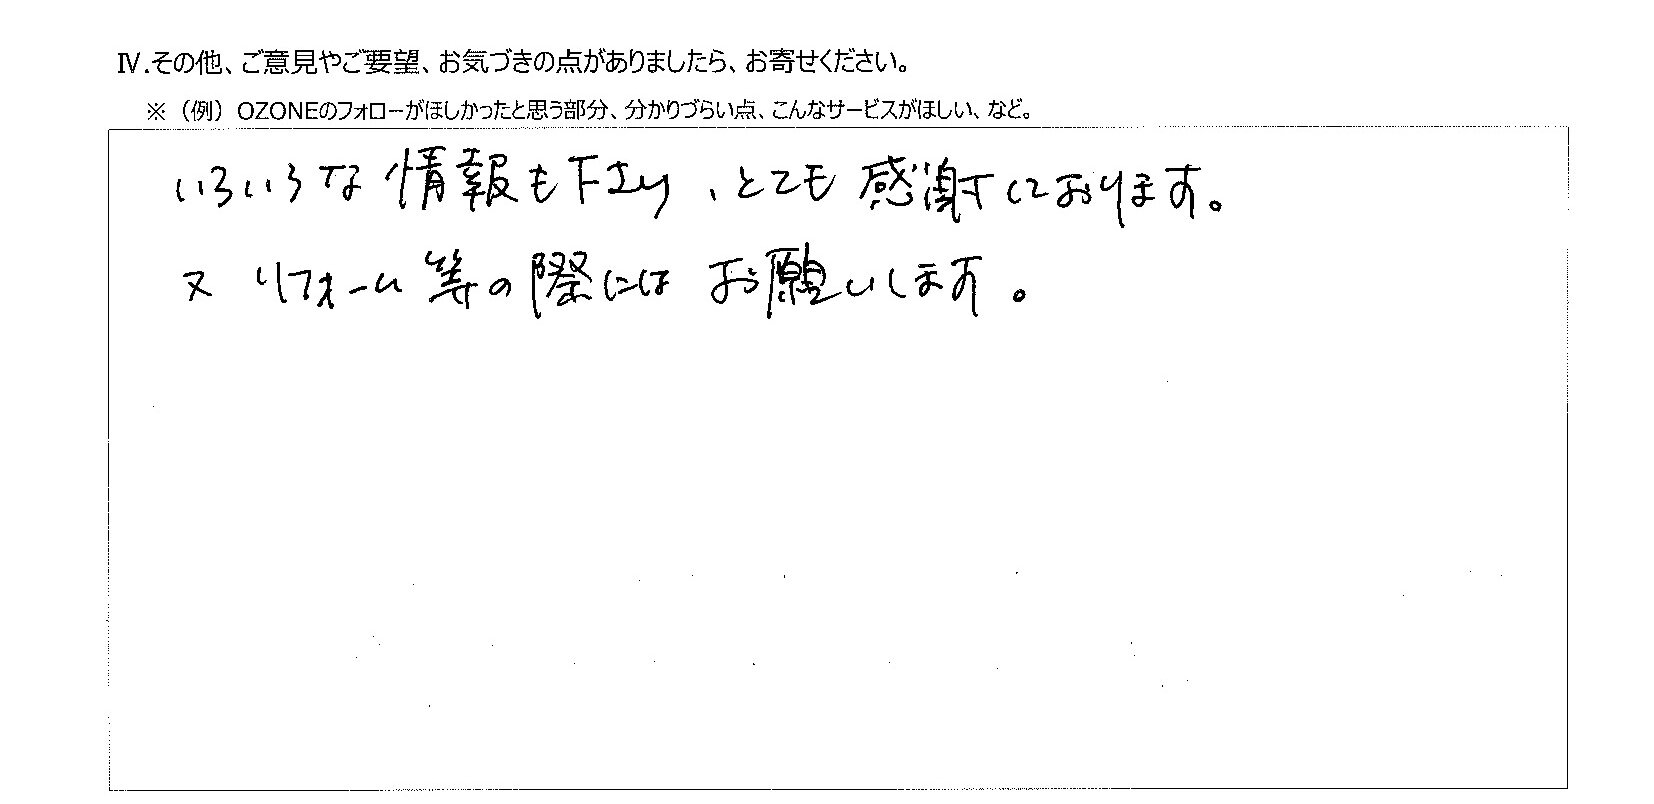 Ⅳ.その他、ご意見やご要望、お気づきの点がありましたら、お寄せください。
※（例）OZONEのフォローがほしかったと思う部分、分かりづらい点、こんなサービスがほしい、など。
いろいろな情報も下さり、とても感謝しております。
又リフォーム等の際にはお願いします。